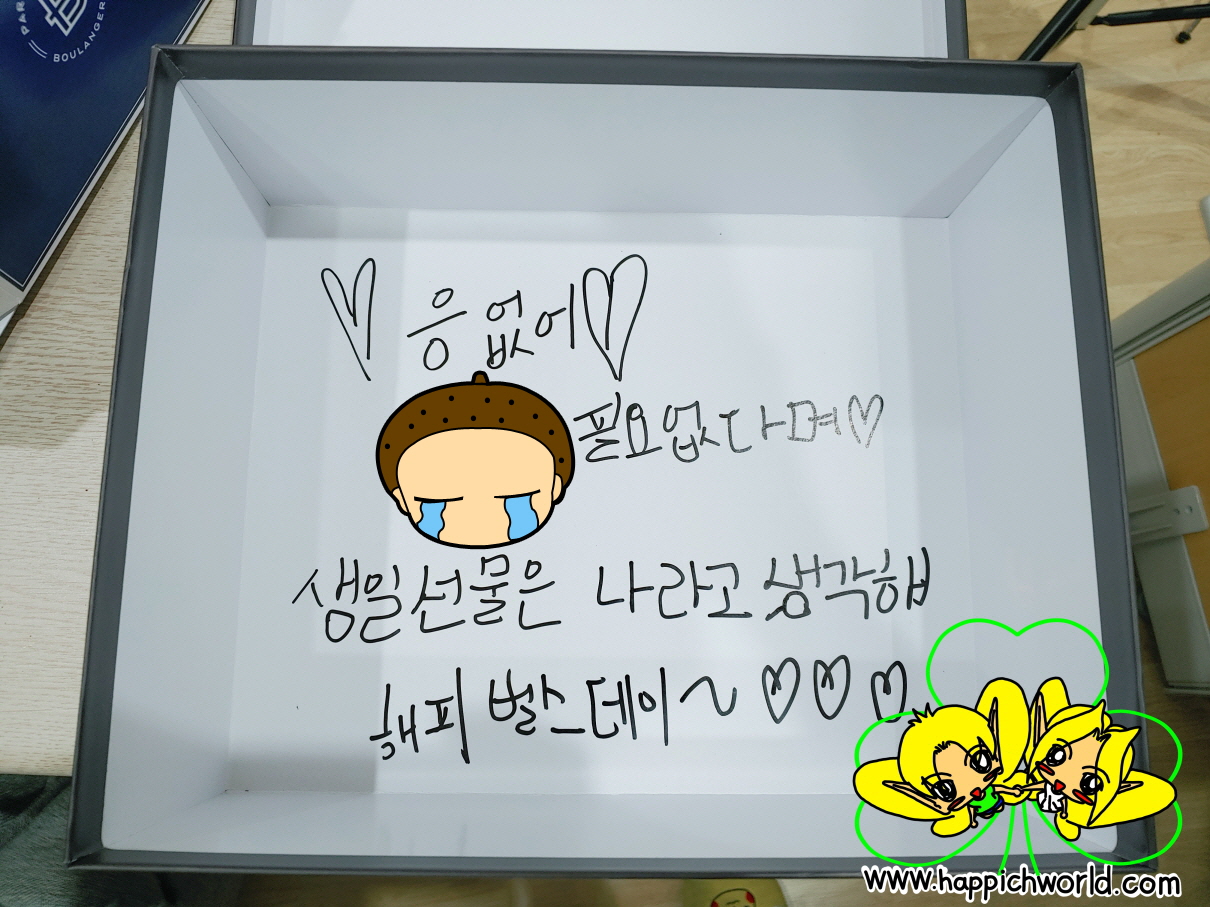 PAR
BOULANGER
♡ 응 없어♡
필요없다며♡
생일선물은 나라고 생각해
해피 벌스데이~ ♡♡♡
www.happichworld.com